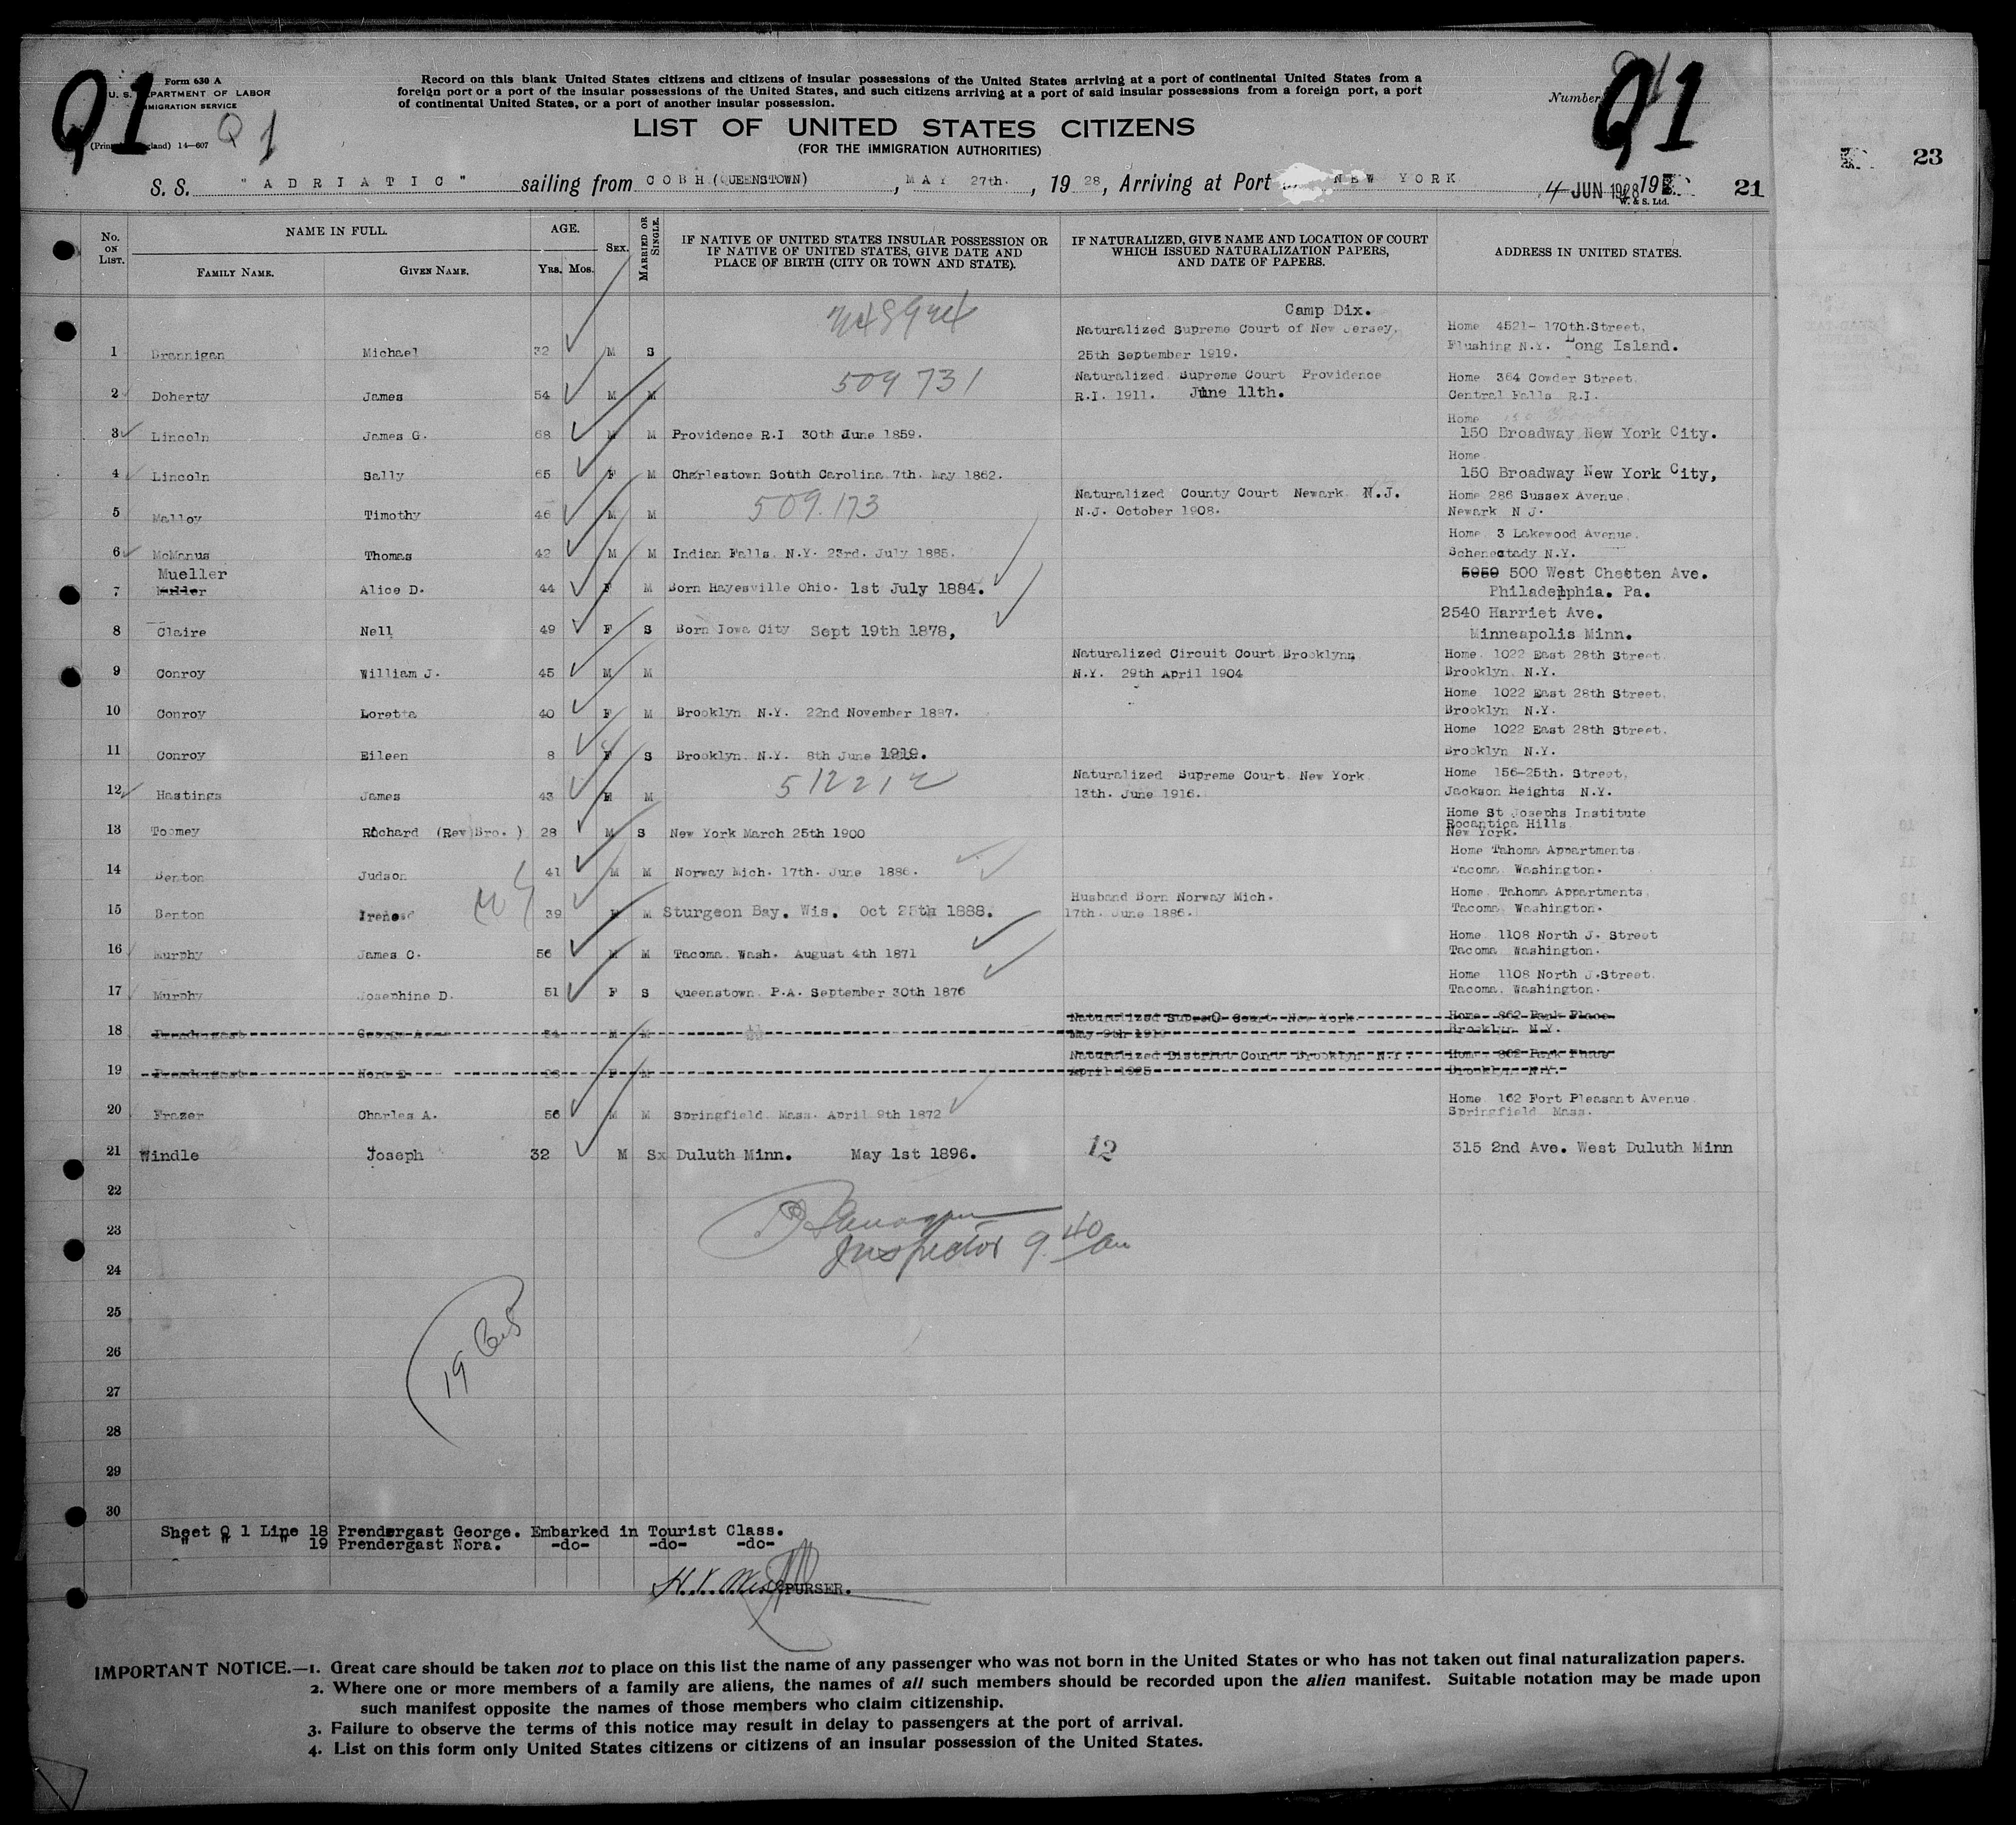 Q1
Form 630 A
U. S. DEPARTMENT OF LABOR
IMMIGRATION SERVICE
Q 1
14—607
Record on this blank United States citizens and citizens of insular possessions of the United States arriving at a port of continental United States from a
foreign port or a port of the insular possessions of the United States, and such citizens arriving at a port of said insular possessions from a foreign port, a port
of continental United States, or a port of another insular possession.
LIST OF UNITED STATES CITIZENS
(FOR THE IMMIGRATION AUTHORITIES)
Number
Q1
23
S. S. "ADRIATIC" sailing from COBH (QUEENSTOWN), MAY 27th., 1928, Arriving at Port NEW YORK 4 JUN 1928 19
W. & S. Ltd.
21
No. ON LIST.
NAME IN FULL.
FAMILY NAME. GIVEN NAME.
AGE.
YRS. MOS.
SEX.
MARRIED OR SINGLE.
IF NATIVE OF UNITED STATES INSULAR POSSESSION OR
IF NATIVE OF UNITED STATES, GIVE DATE AND
PLACE OF BIRTH (CITY OR TOWN AND STATE).
IF NATURALIZED, GIVE NAME AND LOCATION OF COURT
WHICH ISSUED NATURALIZATION PAPERS,
AND DATE OF PAPERS.
ADDRESS IN UNITED STATES.
Camp Dix.
Naturalized Supreme Court of New Jersey, Home 4521- 170th.Street,
1 Brannigan Michael 32 M S 25th September 1919. Flushing N.Y. Long Island.
509 731 Naturalized Supreme Court Providence Home 364 Cowder Street.
2 Doherty James 54 M M R.I. 1911. June 11th. Central Falls R.I.
Home
3 Lincoln James G. 68 M M Providence R.I 30th June 1859. 150 Broadway New York City.
Home
4 Lincoln Sally 65 F M Charlestown South Carolina 7th. May 1862. 150 Broadway New York City,
509.173 Naturalized County Court Newark N.J. Home 286 Sussex Avenue.
5 Malloy Timothy 46 M M N.J. October 1908. Newark N J.
Home 3 Lakewood Avenue.
6 McManus Thomas 42 M M Indian Falls N.Y. 23rd. July 1885. Schenectady N.Y.
Mueller 5959 500 West Chetten Ave.
7 Miller Alice D. 44 F M Born Hayesville Ohio. 1st July 1884. Philadelphia. Pa.
2540 Harriet Ave.
8 Claire Nell 49 F S Born Iowa City Sept 19th 1878, Minneapolis Minn.
Naturalized Circuit Court Brooklyn, Home 1022 East 28th Street.
9 Conroy William J. 45 M M N.Y. 29th April 1904 Brooklyn N.Y.
Home 1022 East 28th Street.
10 Conroy Loretta 40 F M Brooklyn N.Y. 22nd November 1887. Brooklyn N.Y.
Home 1022 East 28th Street.
11 Conroy Eileen 8 F S Brooklyn N.Y. 8th June 1919. Brooklyn N.Y.
512212 Naturalized Supreme Court New York Home 156-25th. Street,
12 Hastings James 43 M M 13th. June 1916. Jackson Heights N.Y.
Home St Josephs Institute
13 Toomey Richard (Rev Bro. ) 28 M S New York March 25th 1900 Rocantica Hills
New York.
Home Tahoma Appartments
14 Benton Judson 41 M M Norway Mich. 17th. June 1886. Tacoma Washington.
Husband Born Norway Mich. Home Tahoma Appartments
15 Benton Irene 39 F M Sturgeon Bay. Wis. Oct 25th 1888. 17th. June 1886. Tacoma Washington.
Home 1108 North J. Street
16 Murphy James C. 56 M M Tacoma Wash. August 4th 1871 Tacoma Washington.
Home 1108 North J.Street.
17 Murphy Josephine D. 51 F S Queenstown P.A. September 30th 1876 Tacoma Washington.
Naturalized Supreme Court New York Home 862 Park Place
18 Prendergast George A 54 M M May 9th 1919 Brooklyn N.Y.
Naturalized District Court Brooklyn N.Y. Home 862 Park Place
19 Prendergast Nora F M April 1925 Brooklyn N.Y.
Home 162 Fort Pleasant Avenue
20 Frazer Charles A. 56 M M Springfield Mass. April 9th 1872 Springfield Mass.
21 Windle Joseph 32 M Sx Duluth Minn. May 1st 1896. 12 315 2nd Ave. West Duluth Minn
22
23
Inspector 9 40 am
24
25
26
27
28
29
30
Sheet Q 1 Line 18 Prendergast George. Embarked in Tourist Class.
" " " 19 Prendergast Nora. -do- -do- -do-
PURSER.
IMPORTANT NOTICE.—1. Great care should be taken not to place on this list the name of any passenger who was not born in the United States or who has not taken out final naturalization papers.
2. Where one or more members of a family are aliens, the names of all such members should be recorded upon the alien manifest. Suitable notation may be made upon
such manifest opposite the names of those members who claim citizenship.
3. Failure to observe the terms of this notice may result in delay to passengers at the port of arrival.
4. List on this form only United States citizens or citizens of an insular possession of the United States.